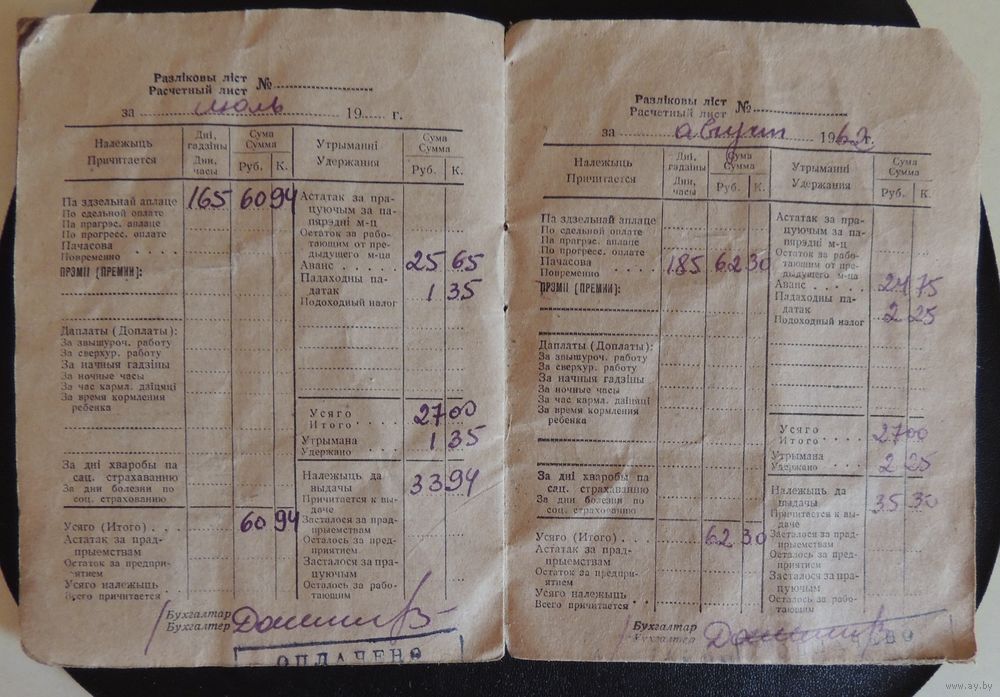 Разліковы ліст
Расчетный лист №
за июль 19 г.
Належыць
Причитается
Дні, гадзіны
Дни, часы
Сума
Сумма
Руб. К.
Утрыманні
Удержания
Сума
Сумма
Руб. К.
Па здзельнай аплаце 165 60 94
По сдельной оплате
Па прагрэс. аплаце
По прогресс. оплате
Пачасова
Повременно
ПРЭМІІ (ПРЕМИИ):
Даплаты (Доплаты):
За звышуроч. работу
За сверхур. работу
За начныя гадзіны
За ночные часы
За час кармл. дзіцяці
За время кормления
ребенка
За дні хваробы па
сац. страхаванню
За дни болезни по
соц. страхованию
Усяго (Итого) 60 94
Астатак за прад-
прыемствам
Остаток за предпри-
ятием
Усяго належыць
Всего причитается
Астатак за пра-
цуючым за па-
пярэдні м-ц
Остаток за рабо-
тающим от пре-
дыдущего м-ца
Аванс 25 65
Падаходны па-
датак 1 35
Подоходный налог
Усяго
Итого 27 00
Утрымана
Удержано 1 35
Належыць да
выдачы 33 94
Причитается к вы-
даче
Засталося за прад-
прыемствам
Осталось за пред-
приятием
Засталося за пра-
цуючым
Осталось за рабо-
тающим
Бухгалтар
Бухгалтер
ОПЛАЧЕНО
Разліковы ліст
Расчетный лист №
за август 1962г.
Належыць
Причитается
Дні, гадзіны
Дни, часы
Сума
Сумма
Руб. К.
Утрыманні
Удержания
Сума
Сумма
Руб. К.
Па здзельнай аплаце
По сдельной оплате
Па прагрэс. аплаце
По прогресс. оплате
Пачасова
Повременно 185 62 30
ПРЭМІІ (ПРЕМИИ):
Даплаты (Доплаты):
За звышуроч. работу
За сверхур. работу
За начныя гадзіны
За ночные часы
За час кармл. дзіцяці
За время кормления
ребенка
За дні хваробы па
сац. страхаванню
За дни болезни по
соц. страхованию
Усяго (Итого) 62 30
Астатак за прад-
прыемствам
Остаток за предпри-
ятием
Усяго належыць
Всего причитается
Астатак за пра-
цуючым за па-
пярэдні м-ц
Остаток за рабо-
тающим от пре-
дыдущего м-ца
Аванс 24 75
Падаходны па-
датак
Подоходный налог 2 25
Усяго
Итого 27 00
Утрымана
Удержано 2 25
Належыць да
выдачы 35 30
Причитается к вы-
даче
Засталося за прад-
прыемствам
Осталось за пред-
приятием
Засталося за пра-
цуючым
Осталось за рабо-
тающим
Бухгалтар
Бухгалтер
www.ay.by